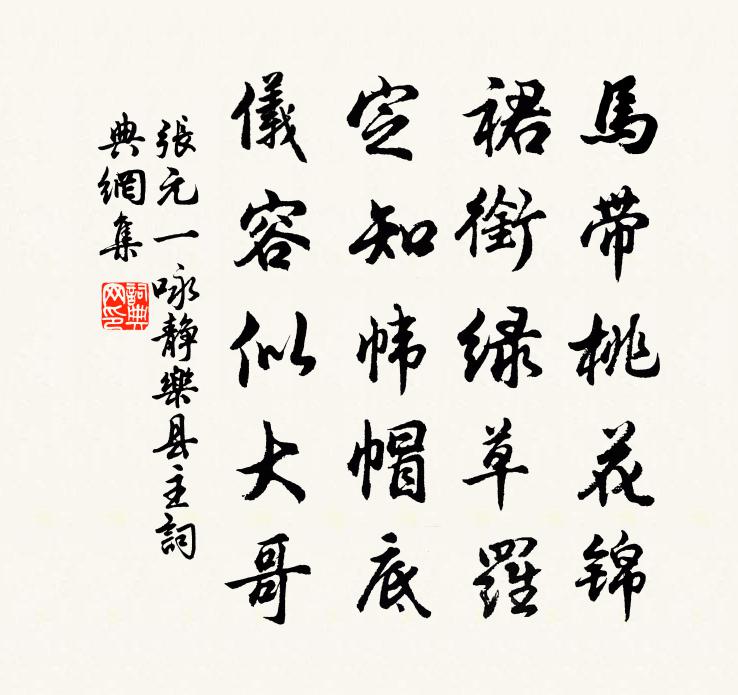 馬帶桃花錦
裙銜綠草羅
定知幃帽底
儀容似大哥
張元一詠靜樂县主詞
典網集
詞典
网印